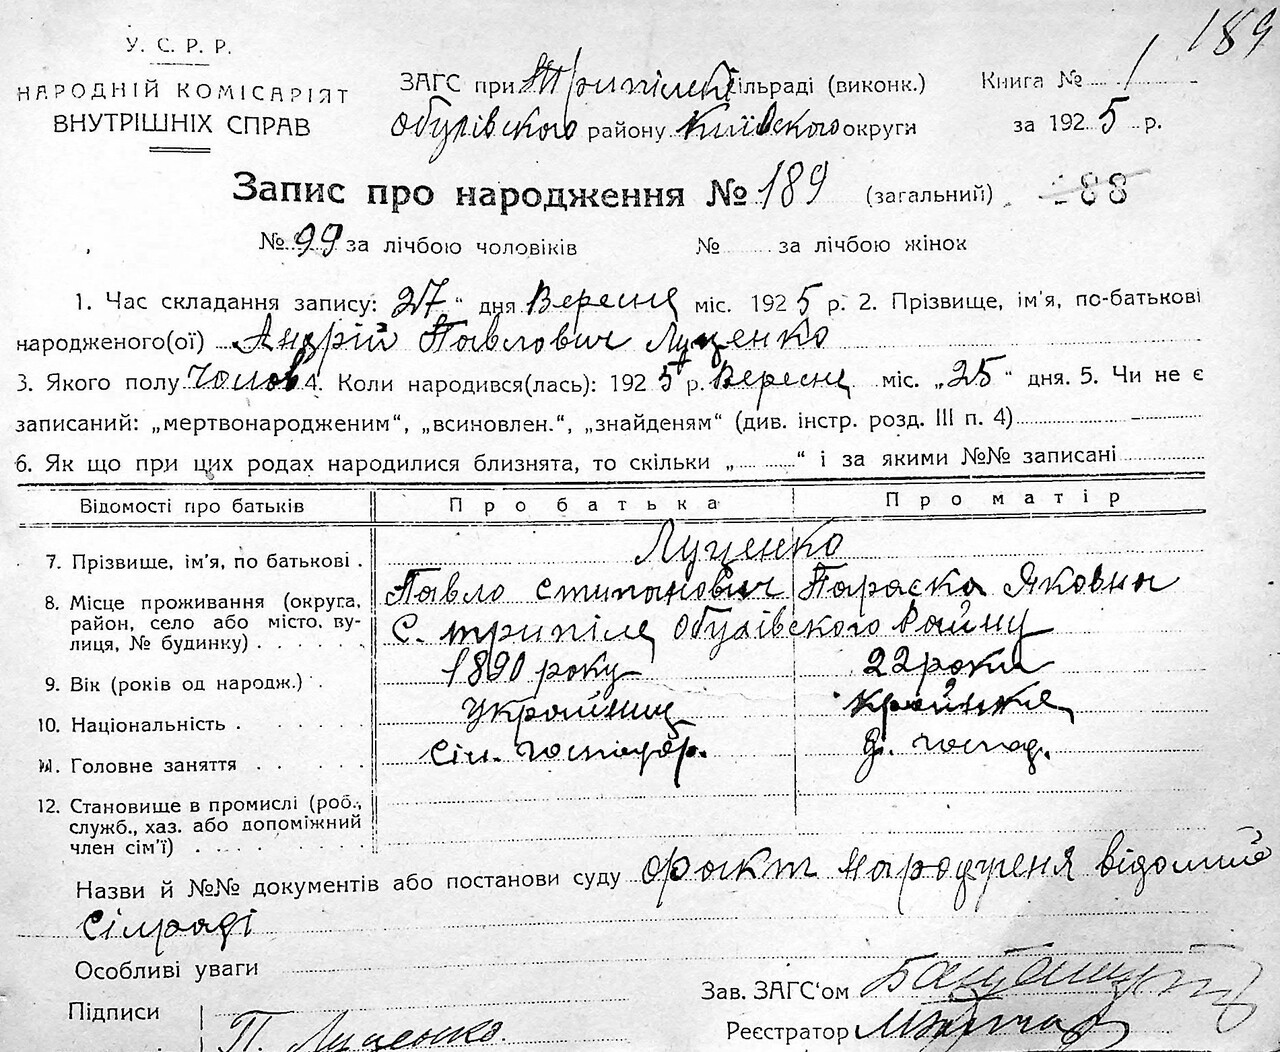 189
У. С. Р. Р.
НАРОДНІЙ КОМІСАРІЯТ
ВНУТРІШНІХ СПРАВ
ЗАГС при Трипілськ сільраді (виконк.)
Обухівского району Київского округи
Книга № 1
за 1925 р.
Запис про народження № 189 (загальний) 188
№ 99 за лічбою чоловіків № за лічбою жінок
1. Час складання запису: 27 “ дня Вересня міс. 1925 р. 2. Прізвище, ім'я, по-батькові
народженого(ої) Андрій Павлович Луценко
3. Якого полу Чолов 4. Коли народився(лась): 1925 р. Вересня міс. „25“ дня. 5. Чи не є
записаний: „мертвонародженим“, „всиновлен.“, „знайденям“ (див. інстр. розд. III п. 4)
6. Як що при цих родах народилися близнята, то скільки „ “ і за якими №№ записані
Відомості про батьків Про батька Про матір
7. Прізвище, ім'я, по батькові . Луценко
Павло Стипанович Параска Яковна
8. Місце проживання (округа,
район, село або місто, ву-
лиця, № будинку) . . . . . . С. Трипіля Обухівского Району
9. Вік (років од народж.) . 1890 року 22 роки
10. Національність . . . . . Україниц країнка
11. Головне заняття . . . . сіл. господор. д. господ.
12. Становище в промислі (роб.,
служб., хаз. або допоміжний
член сім'ї) . . . . . . . .
Назви й №№ документів або постанови суду факт народженя відомий
Сілраді
Особливі уваги
Підписи П. Луценко.
Зав. ЗАГС'ом
Реєстратор